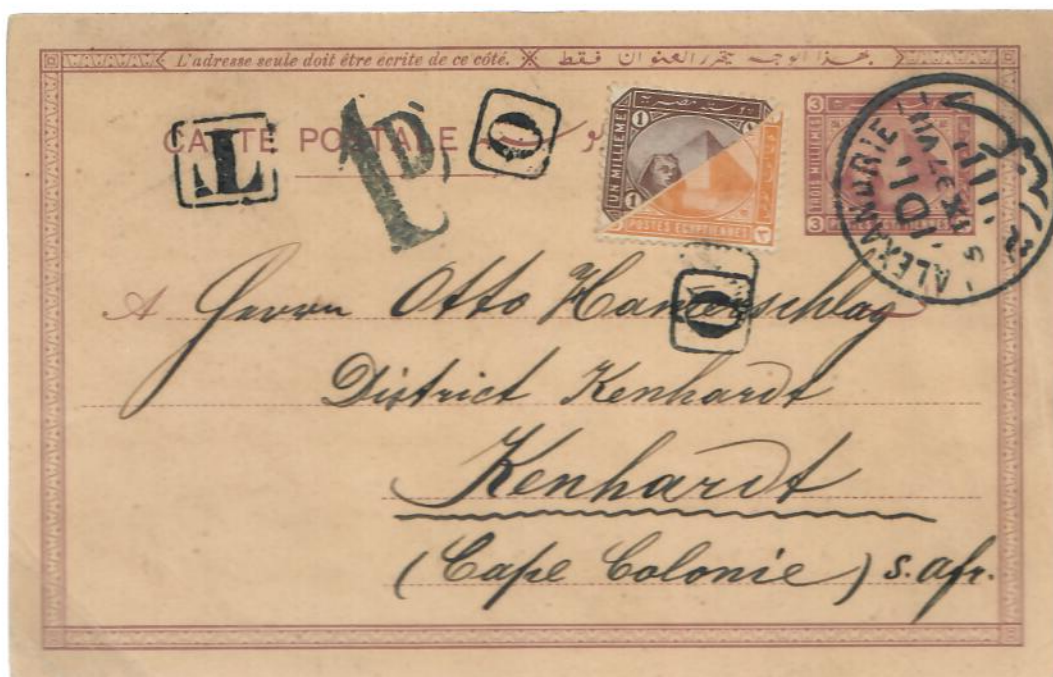 L'adresse seule doit être écrite de ce côté. بهذا الوجه يتحرر العنوان فقط
CARTE POSTALE
T
1D.
O
1
UN MILLIEME
1
1
POSTES EGYPTIENNES
٣
3
3
TROIS MILLIEMES
3
POSTES EGYPTIENNES
ALEXANDRIE
O
A Herrn Otto Hamerschlag
District Kenhardt
Kenhardt
(Cape Colonie) S. Afr.